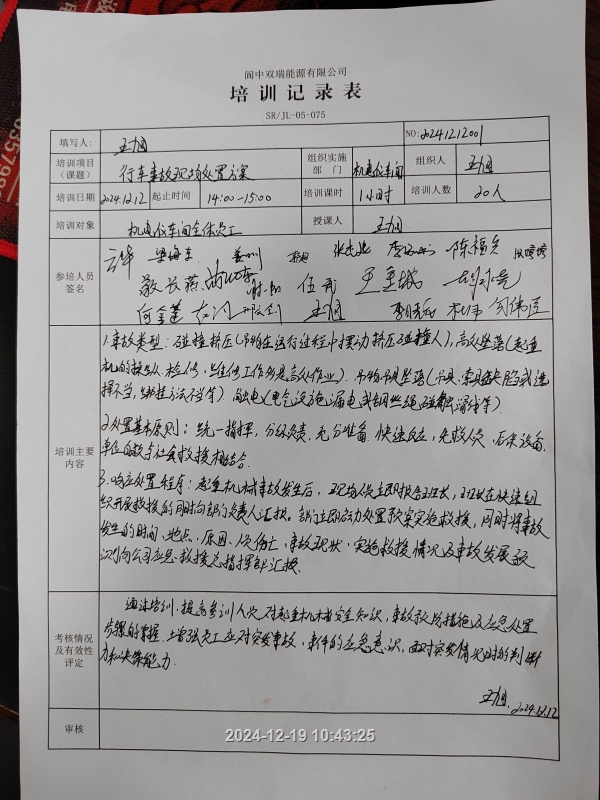 阆中双瑞能源有限公司
培训记录表
SR/JL-05-075
填写人: NO:20241212001
培训项目(课题) 行车事故现场处置方案 组织实施部门 机电仪车间 组织人
培训日期 2024.12.12 起止时间 14:00-15:00 培训课时 1小时 培训人数 20人
培训对象 机电仪车间全体员工 授课人
参培人员签名
陈福先
敬长燕 伍
何金莲
培训主要内容
1.事故类型:碰撞挤压(吊物在运行过程中摆动挤压碰撞人),高处坠落(起重
机的操纵、检修、维修工作为是高处作业).吊物吊具坠落(吊具、索具缺陷或选
择不当,捆挂方法不当等)触电(电气设施漏电或钢丝绳碰触滑线等).
2.处置基本原则:统一指挥,分级负责,充分准备,快速反应,先救人员,后来设备,
单位自救与社会救援相结合.
3.响应处置程序:起重机械事故发生后,现场人员立即报告班长,班长在快速组
织开展救援的同时向部门负责人汇报。部门立即启动处置预案实施救援,同时将事故
发生的时间、地点、原因、人员伤亡、事故现状、实施救援情况及事故发展预
测向公司应急救援总指挥部汇报.
考核情况及有效性评定
通过培训,提高参训人员对起重机械安全知识,事故预防措施及应急处置
步骤的掌握,增强员工应对突发事故、事件的应急意识,面对突发情况时的判断
力和决策能力.
2024.12.12
审核
2024-12-19 10:43:25
035799